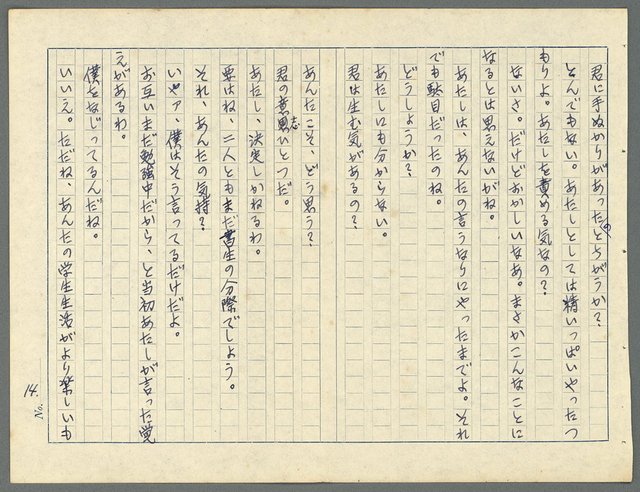 君に手ぬかりがあったのとちがうか？
とんでもない。あたしとしては精いっぱいやったつ
もりよ。あたしを責める気なの？
ないさ。だけどおかしいなあ。まさかこんなことに
なるとは思えないがね。
あたしは、あんたの言うなりにやったまでよ。それ
でも駄目だったのね。
どうしようか？
あたしにも分からない。
君は生む気があるの？
あんたこそ、どう思う？
君の意志ひとつだ。
あたし、決定しかねるわ。
要はね、二人ともまだ書生の分際でしょう。
それ、あんたの気持？
いやァ、僕はそう言ってるだけだよ。
お互いまだ勉強中だから、と当初あたしが言った覚
えがあるわ。
僕をなじってるんだね。
いいえ。ただね、あんたの学生生活がより楽しいも
No. 14.